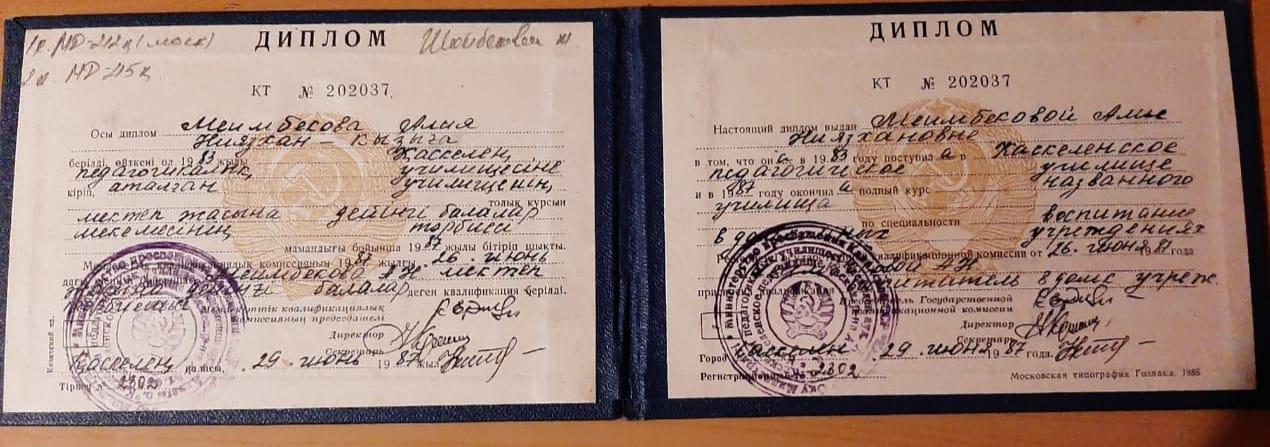 ДИПЛОМ
ҚТ № 202037
Осы диплом Меимбекова Алия
Ниязхан-кызыга
берілді, өйткені ол 1983 жылы Касселең
педагогикалық училищесіне
кіріп, аталған училищенің
толық курсын
мектеп жасына дейінгі балалар
мекемесінің тәрбиесі
мамандығы бойынша 1987 жылы бітіріп шықты.
квалификациялық комиссиясының 1987 жылғы 26 июнь
мектеп
балалар деген квалификация берілді.
Мемлекеттік квалификациялық
комиссияның председателі
Директор
Секретарь
Касселең қаласы, 29 июнь 1987 жыл
Тіркеу № 2802
Казахский яз.
ДИПЛОМ
КТ № 202037
Настоящий диплом выдан Меимбековой Алие
Ниязхановне
в том, что она в 1983 году поступила в Каскеленское
педагогическое училище
и в 1987 году окончила полный курс названного
училища
по специальности воспитание
в учреждениях
квалификационной комиссии от 26 июня 1987 года
А Н
воспитатель в дошк учреж
Председатель Государственной
квалификационной комиссии
Директор
Секретарь
Город Каскелен 29 июня 1987 года.
Регистрационный № 2802
Московская типография Гознака. 1986